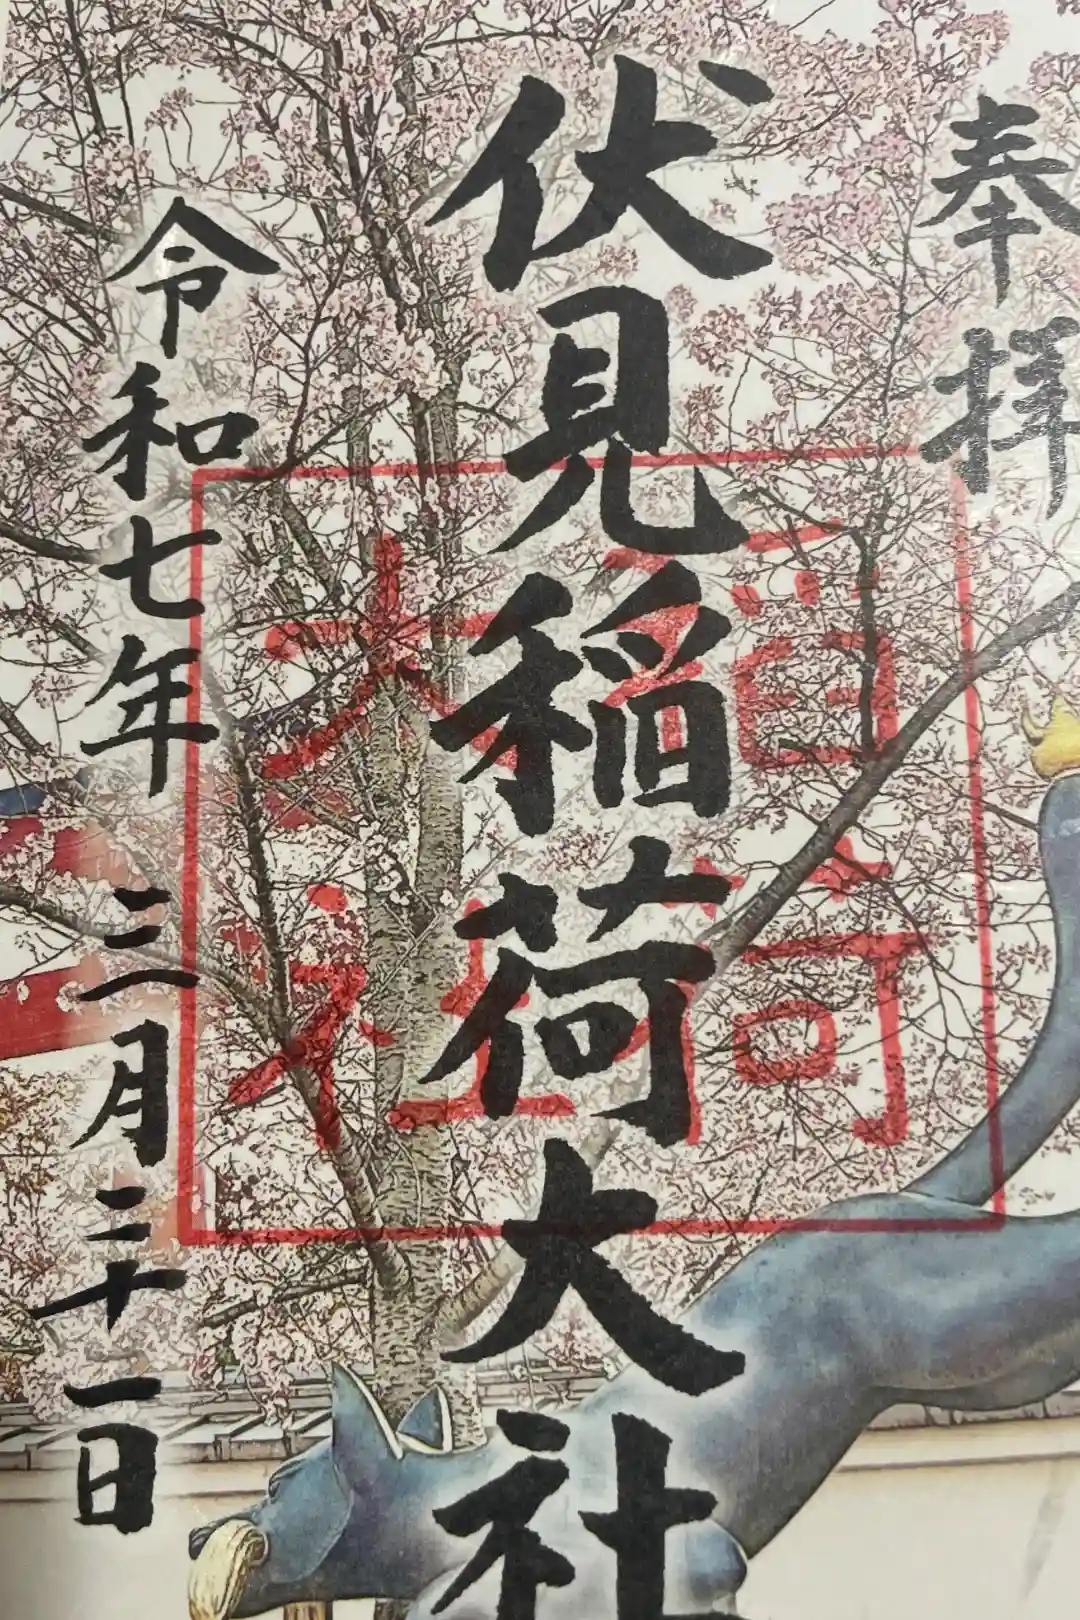 奉拝
伏見稲荷大社
令和七年 三月二十一日
稲荷
大社